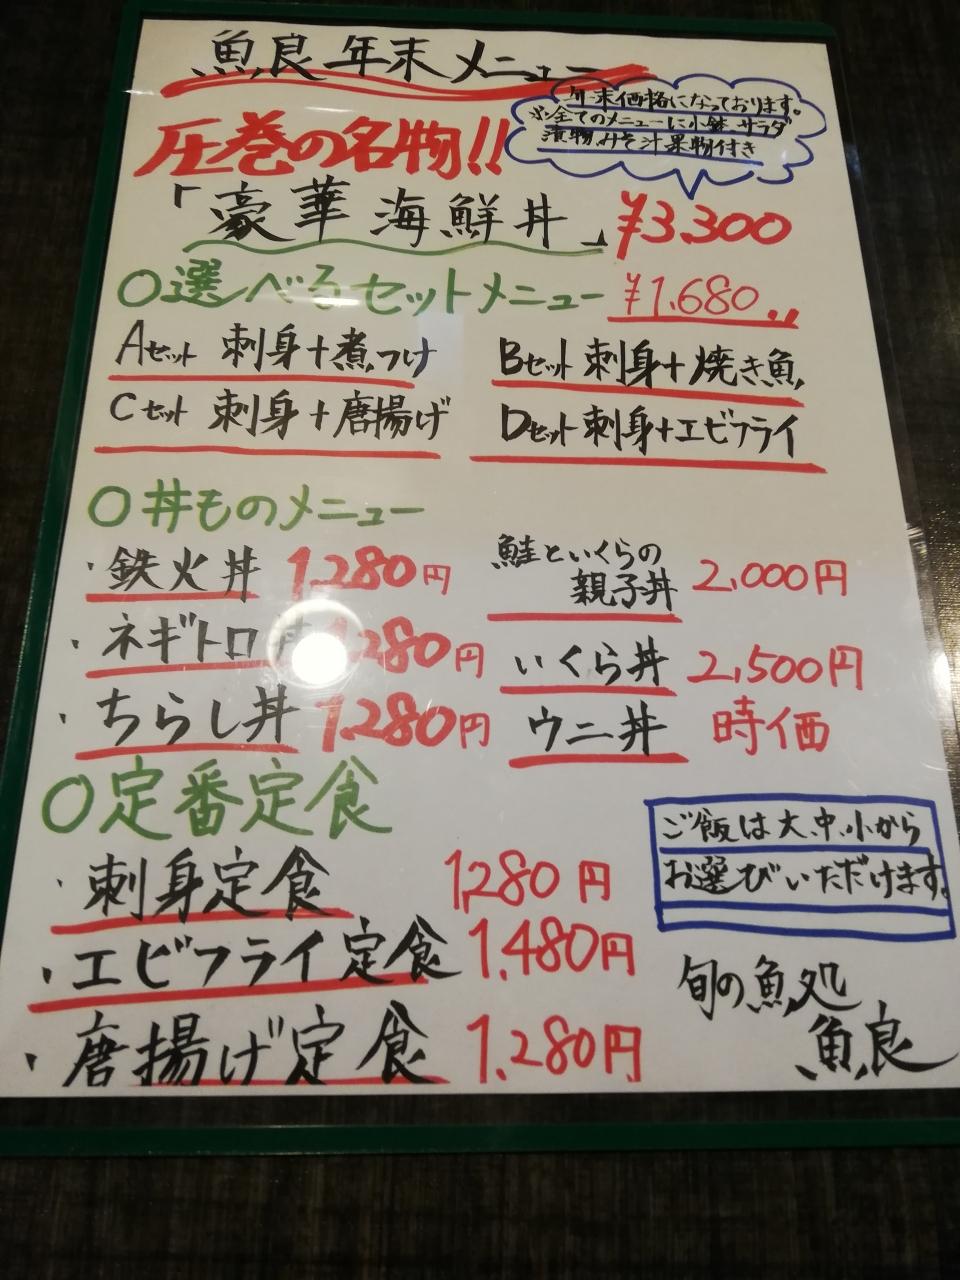 魚良 年末メニュー
年末価格になっております。
※全てのメニューに小鉢、サラダ
漬物、みそ汁 果物付き
圧巻の名物!!
「豪華 海鮮丼」 ¥3.300
○選べるセットメニュー ¥1.680
Aセット 刺身+煮つけ
Bセット 刺身+焼き魚
Cセット 刺身+唐揚げ
Dセット 刺身+エビフライ
○丼ものメニュー
・鉄火丼 1.280円
・ネギトロ丼 1.280円
・ちらし丼 1.280円
鮭といくらの
親子丼 2,000円
いくら丼 2,500円
ウニ丼 時価
○定番定食
・刺身定食 1,280円
・エビフライ定食 1.480円
・唐揚げ定食 1.280円
ご飯は大、中、小から
お選びいただけます。
旬の魚処
魚良